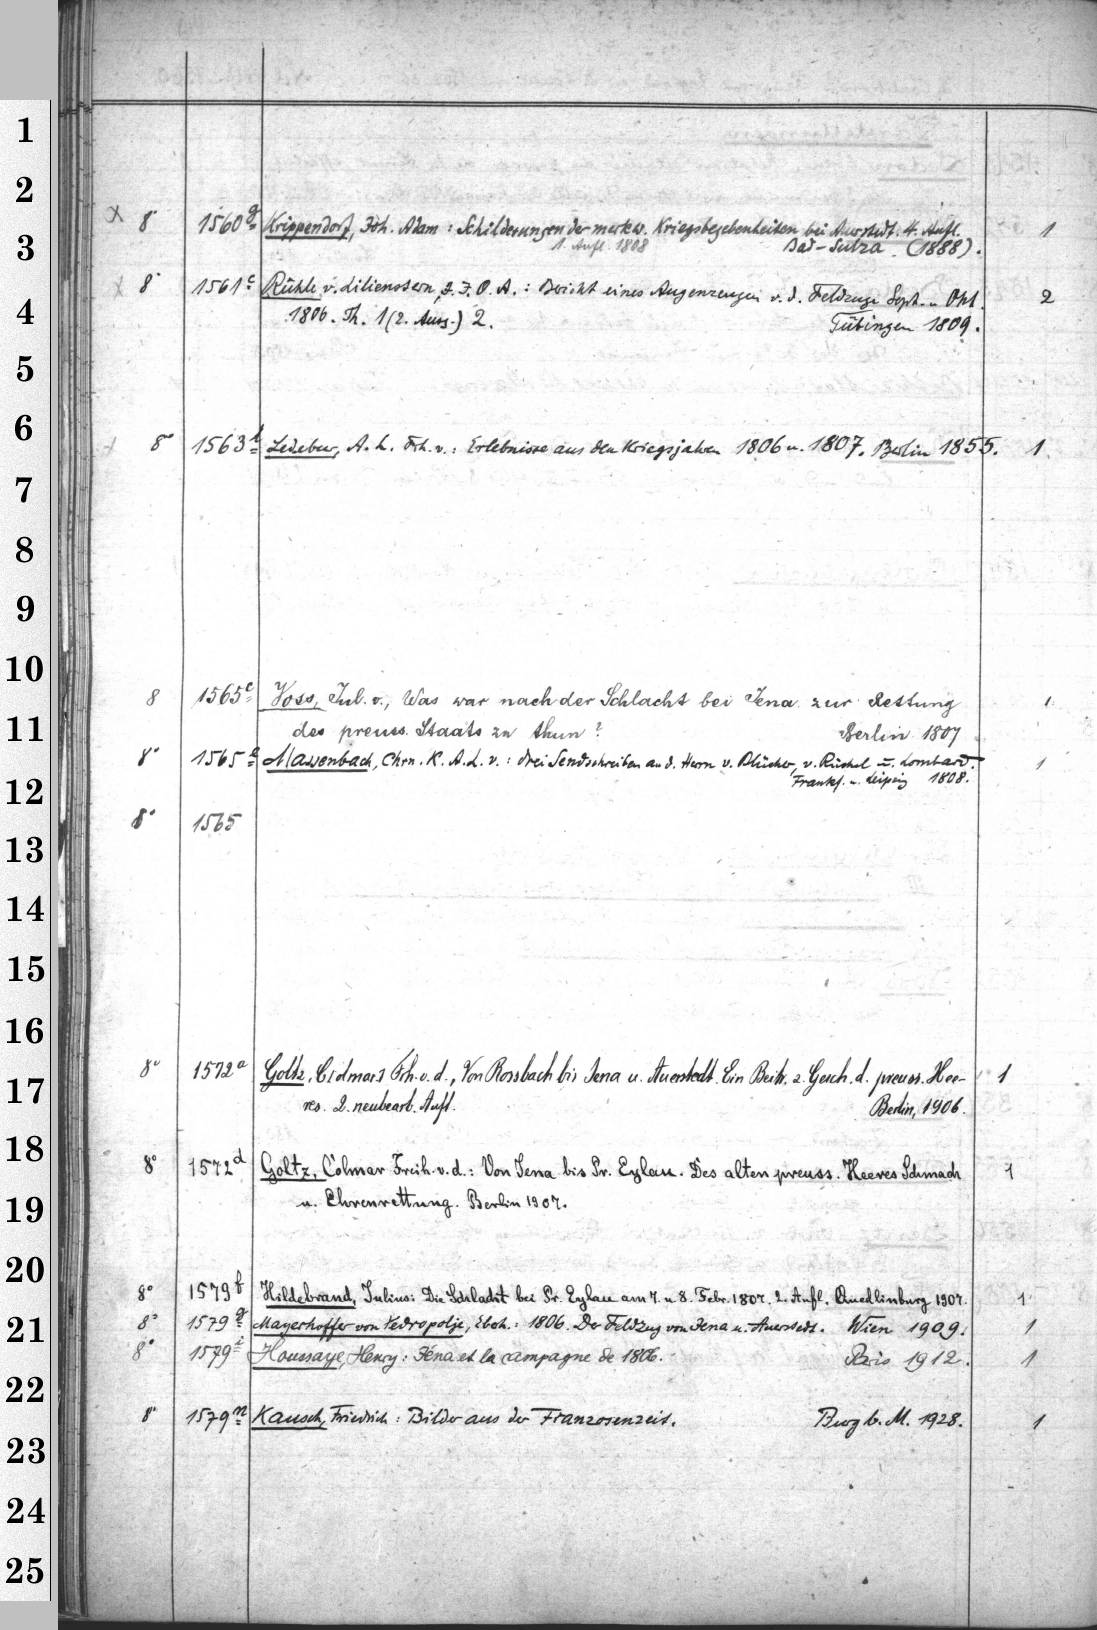 1
2
x 8° 1560g Krippendorf, Joh. Adam : Schilderungen der merkw. Kriegsbegebenheiten bei Auerstedt. 4. Aufl. 1
3
1. Aufl. 1808 Bad-Sulza. (1888).
x 8° 1561c Rühle v. Lilienstern, J. J. O. A. : Bericht eines Augenzeugen v. d. Feldzuge Sept. u. Okt. 2
4
1806. Th. 1 (2. Ausg.) 2. Tübingen 1809.
5
6
8° 1563b Ledebur, A. L. Frh. v. : Erlebnisse aus den Kriegsjahren 1806 u. 1807. Berlin 1855. 1
7
8
9
10
8 1565c Voss, Jul. v., Was war nach der Schlacht bei Jena zur Rettung 1
11
des preuss. Staats zu thun? Berlin 1807
8° 1565e Massenbach, Chrn. K. A. L. v. : Drei Sendschreiben an d. Herrn v. Blücher, v. Rüchel u. Lombard. 1
Frankf. u. Leipzig 1808.
12
8° 1565
13
14
15
16
8° 1572a Goltz, Colmar Frh. v. d., Von Rossbach bis Jena u. Auerstedt. Ein Beitr. z. Gesch. d. preuss. Hee- 1
17
res. 2. neubearb. Aufl. Berlin, 1906.
18
8° 1572d Goltz, Colmar Freih. v. d. : Von Jena bis Pr. Eylau. Des alten preuss. Heeres Schmach 1
19
u. Ehrenrettung. Berlin 1907.
20
8° 1579b Hildebrand, Julius: Die Schlacht bei Pr. Eylau am 7. u 8. Febr. 1807. 2. Aufl. Quedlinburg 1907. 1
21
8° 1579g Mayerhoffer von Vedropolje, Eboh. : 1806. Der Feldzug von Jena u. Auerstedt. Wien 1909. 1
8° 1579i Houssaye, Henry : Jéna et la campagne de 1806. Paris 1912. 1
22
8° 1579n Kausch, Friedrich : Bilder aus der Franzosenzeit. Burg b. M. 1928. 1
23
24
25